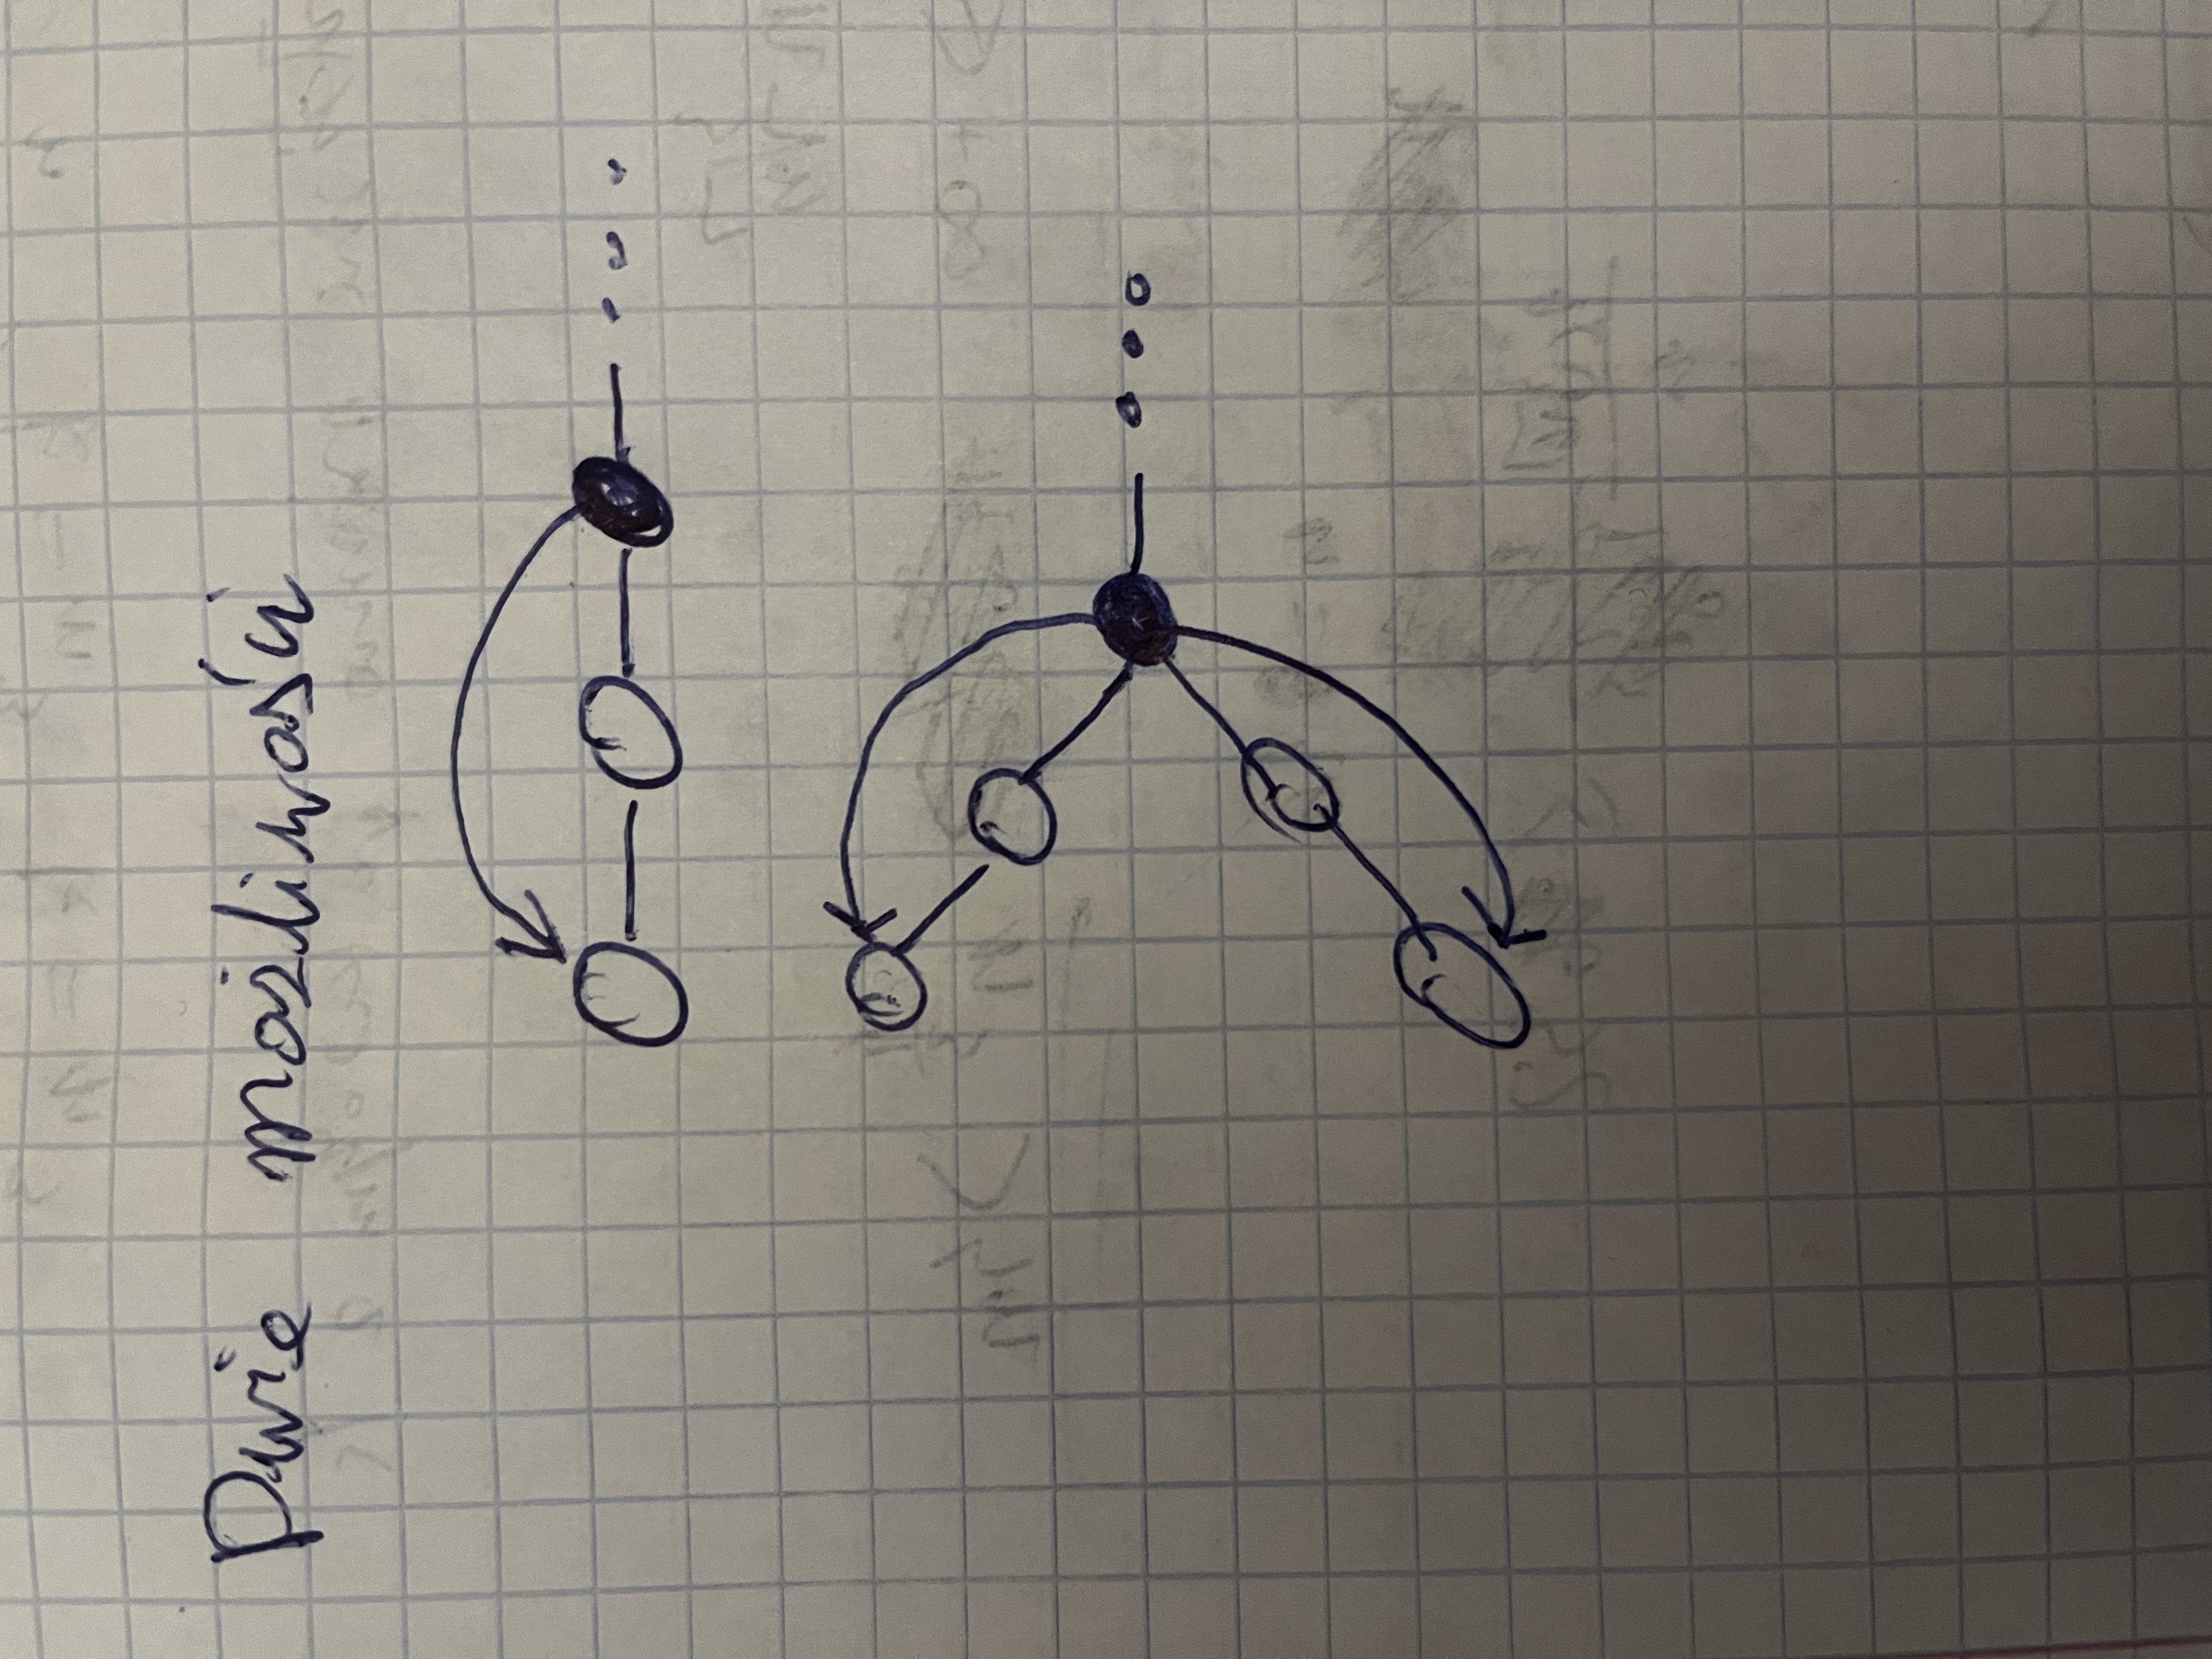 Dwie możliwości